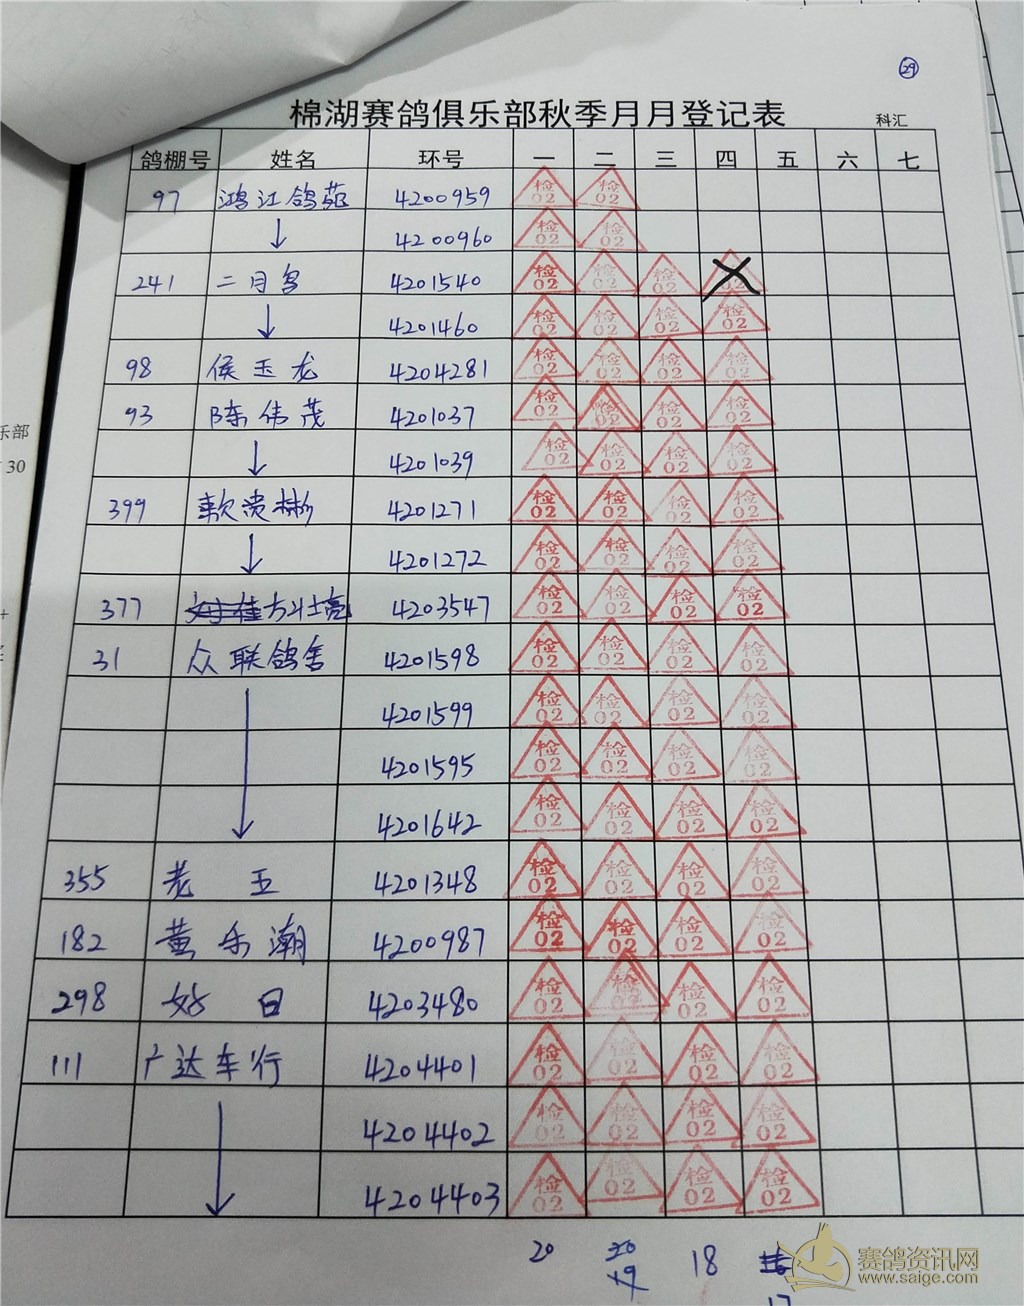 29
棉湖赛鸽俱乐部秋季月月登记表 科汇
鸽棚号 姓名 环号 一 二 三 四 五 六 七
97 鸿江鸽苑 4200959 检02 检02
↓ 4200960 检02 检02
241 二月宫 4201540 检02 检02 检02
↓ 4201460 检02 检02 检02 检02
98 侯玉龙 4204281 检02 检02 检02 检02
93 陈伟茂 4201037 检02 检02 检02 检02
↓ 4201039 检02 检02 检02 检02
399 贵彬 4201271 检02 检02 检02 检02
↓ 4201272 检02 检02 检02 检02
377 4203547 检02 检02 检02 检02
31 众联鸽舍 4201598 检02 检02 检02 检02
4201599 检02 检02 检02 检02
4201595 检02 检02 检02 检02
↓ 4201642 检02 检02 检02 检02
355 老五 4201348 检02 检02 检02 检02
182 黄乐潮 4200987 检02 检02 检02 检02
298 好日 4203480 检02 检02 检02 检02
111 广达车行 4204401 检02 检02 检02 检02
4204402 检02 检02 检02 检02
↓ 4204403 检02 检02 检02 检02
20 20 18
19 17
乐部
30
赛鸽资讯网
www.saige.com